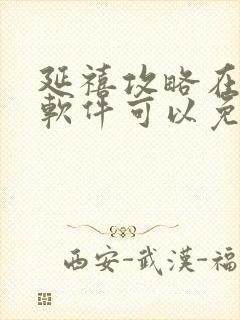 延禧攻略在
軟件可以免
西安-武漢-福